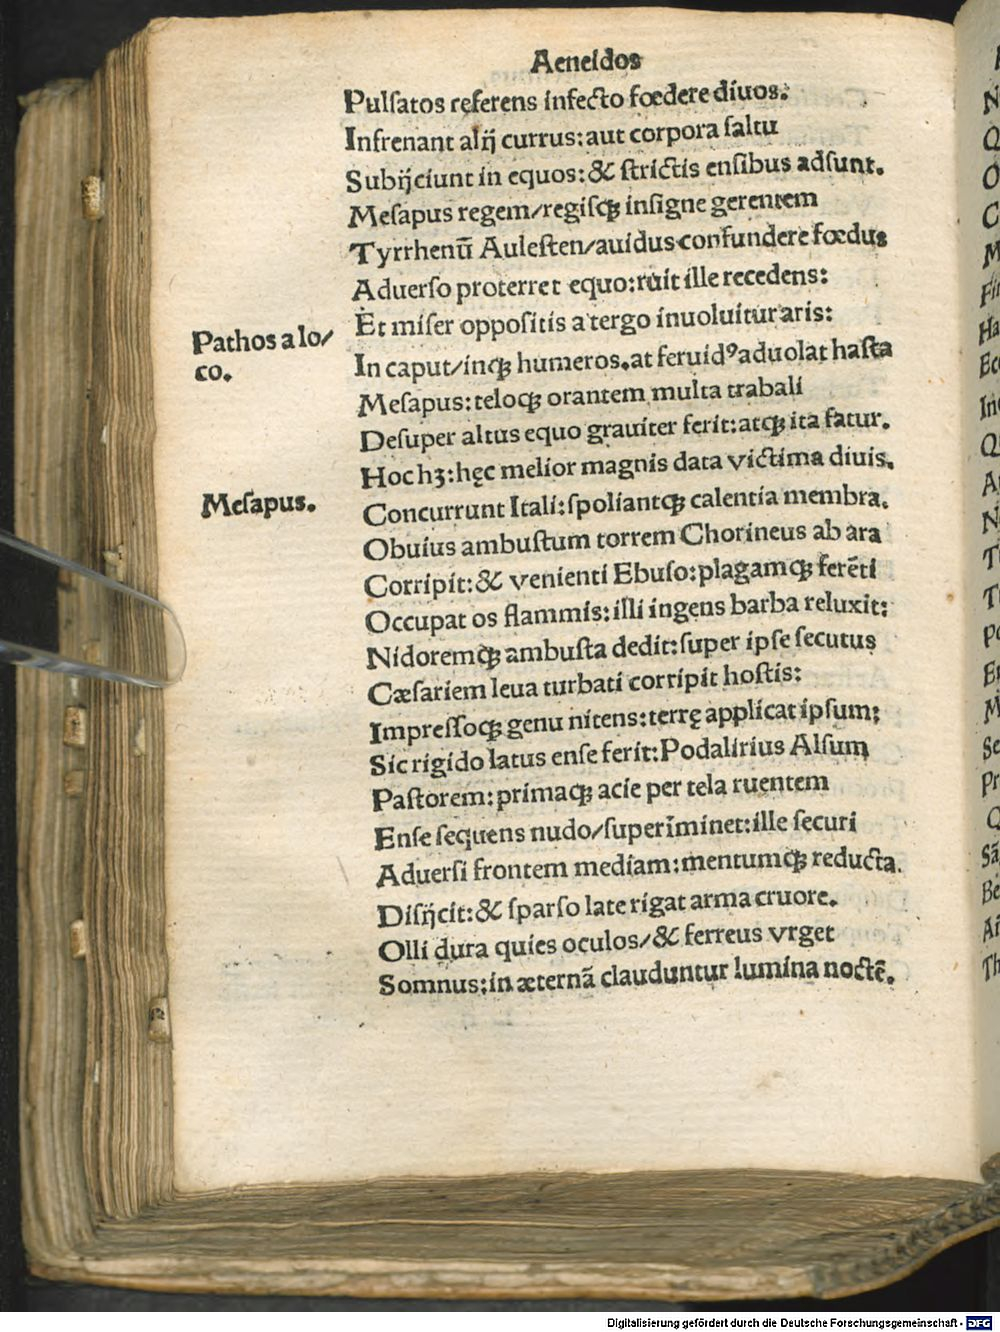 Aeneidos
Pulſatos referens infecto fœdere diuos.
Infrenant alij currus: aut corpora ſaltu
Subijciunt in equos: & ſtrictis enſibus adſunt.
Meſapus regem/regiſqꝫ inſigne gerentem
Tyrrhenū Auleſten/auidus confundere fœdus
Aduerſo proterret equo: ruit ille recedens:
Et miſer oppoſitis a tergo inuoluitur aris:
Pathos a lo/
co.
In caput/inqꝫ humeros. at feruidꝰ aduolat haſta
Meſapus: teloqꝫ orantem multa trabali
Deſuper altus equo grauiter ferit: atqꝫ ita fatur.
Hoc hꝫ: hęc melior magnis data victima diuis.
Meſapus.
Concurrunt Itali: ſpoliantqꝫ calentia membra.
Obuius ambuſtum torrem Chorineus ab ara
Corripit: & venienti Ebuſo: plagamqꝫ ferēti
Occupat os flammis: illi ingens barba reluxit:
Nidoremqꝫ ambuſta dedit: ſuper ipſe ſecutus
Cæſariem leua turbati corripit hoſtis:
Impreſſoqꝫ genu nitens: terrę applicat ipſum:
Sic rigido latus enſe ferit: Podalirius Alſum
Paſtorem: primaqꝫ acie per tela ruentem
Enſe ſequens nudo/ſuperīminet: ille ſecuri
Aduerſi frontem mediam: mentumqꝫ reducta.
Diſijcit: & ſparſo late rigat arma cruore.
Olli dura quies oculos/& ferreus vrget
Somnus: in æternā clauduntur lumina noctē.
Digitalisierung gefördert durch die Deutsche Forschungsgemeinschaft - DFG